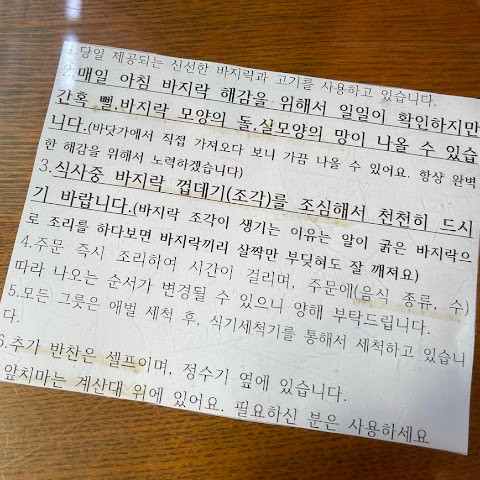 1.당일 제공되는 신선한 바지락과 고기를 사용하고 있습니다.
2.매일 아침 바지락 해감을 위해서 일일이 확인하지만
간혹 뻘,바지락 모양의 돌,실모양의 망이 나올 수 있습
니다.(바닷가에서 직접 가져오다 보니 가끔 나올 수 있어요. 항상 완벽
한 해감을 위해서 노력하겠습니다)
3.식사중 바지락 껍데기(조각)를 조심해서 천천히 드시
기 바랍니다.(바지락 조각이 생기는 이유는 알이 굵은 바지락으
로 조리를 하다보면 바지락끼리 살짝만 부딪혀도 잘 깨져요)
4.주문 즉시 조리하여 시간이 걸리며, 주문에(음식 종류, 수)
따라 나오는 순서가 변경될 수 있으니 양해 부탁드립니다.
5.모든 그릇은 애벌 세척 후, 식기세척기를 통해서 세척하고 있습니
다.
6.추가 반찬은 셀프이며, 정수기 옆에 있습니다.
앞치마는 계산대 위에 있어요. 필요하신 분은 사용하세요